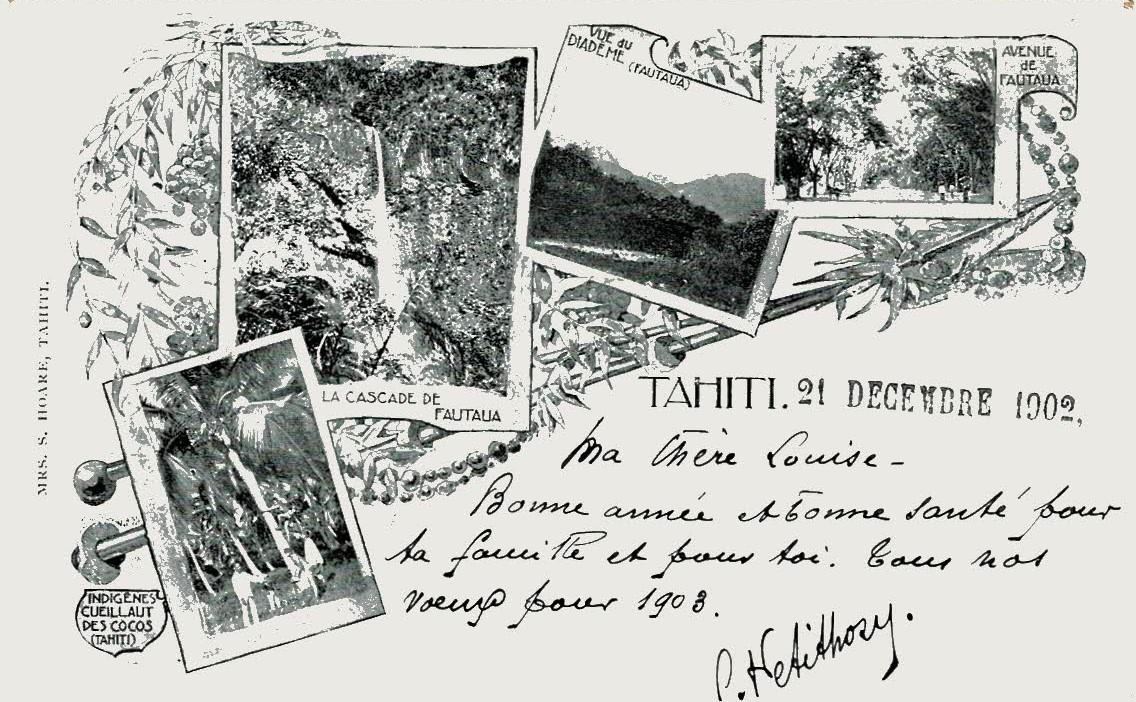 VUE du
DIADÈME (FAUTAUA)
AVENUE
de
FAUTAUA
LA CASCADE DE
FAUTAUA
MRS. S. HOARE, TAHITI.
INDIGÈNES
CUEILLAUT
DES COCOS
(TAHITI)
TAHITI. 21 DECEMBRE 1902,
Ma Chère Louise -
Bonne année et bonne santé pour
ta famille et pour toi. Tous nos
voeux pour 1903.